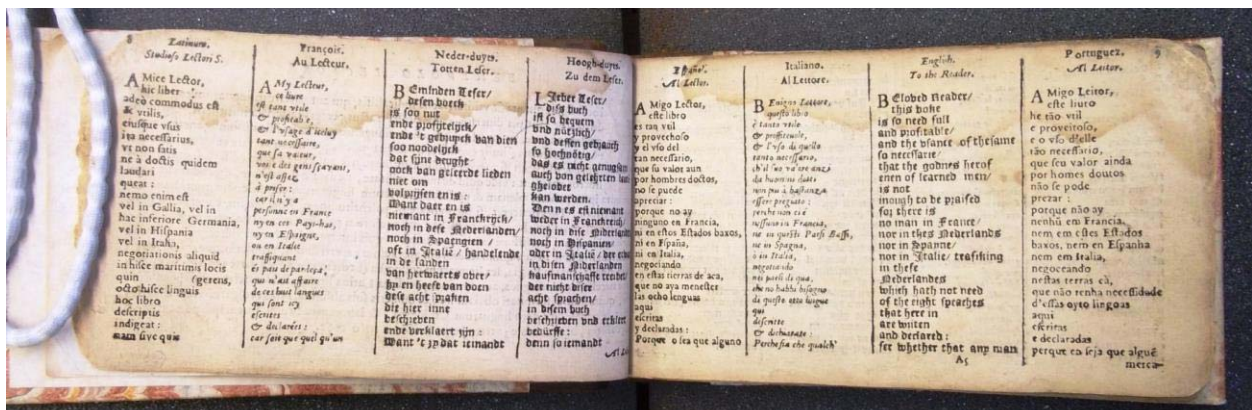 8
Latinum.
Studioso Lectori S.
AMice Lector,
hic liber
adeò commodus est
& vtilis,
eiusque vsus
ita necessarius,
vt non satis
ne à doctis quidem
laudari
queat :
nemo enim est
vel in Gallia, vel in
hac inferiore Germania,
vel in Hispania
vel in Italia,
negotiationis aliquid
in hisce maritimis locis
quin [gerens,
octo hisce linguis
hoc libro
descriptis
indigeat :
nam sive quis
François.
Au Lecteur.
AMy Lecteur,
ce livre
est tant vtile
& profitable,
& l'vsage d'iceluy
tant necessaire,
que sa valeur,
des gens sçavans,
n'est assez
à priser :
car il n'y a
personne en France
ny en ces Pays-bas,
ny en Espaigne,
ou en Italie
traffiquant
qui n'ait affaire
de ces huict langues
qui sont icy
escrites
& declarées :
car soit que quel qu'un
Neder-duyts.
Totten Leser.
BEminden Leser/
desen boeck
is soo nut
ende profijtelijck/
ende 't gebruyck van dien
soo noodelijck
dat sijne deught
oock van geleerde lieden
niet om
volprijsen en is :
Want daer en is
niemant in Franckrijck/
noch in dese Nederlanden/
noch in Spaengien /
oft in Italië / handelende
in de landen
van herwaerts over/
hy en heeft van doen
dese acht spraken
die hier inne
beschreven
ende verklaert zijn :
Want 't zy dat iemandt
Hoogh-duyts.
Zu dem Leser.
LIeber Leser/
diß buch
ist so bequem
vnd nützlich/
vnd dessen gebrauch
so hochnötig/
das es nicht genugsam
auch von gelehrten
gelobet
kan werden.
Denn es ist niemant
weder in Franckreich/
noch in dise Niderlanden
noch in Hispanien/
oder in Italië / der
in disen Niderlanden
kaufmanschafft treibet
der nicht diser
acht sprachen/
in disem buch
beschrieben vnd erklert
bedürffe :
denn so iemandt
Español.
Al Lector.
AMigo Lector,
este libro
es tan vtil
y provechoso
y el vso del
tan necessario,
que su valor aun
por hombres doctos,
no se puede
apreciar :
porque no ay
ninguno en Francia,
ni en estos Estados baxos,
ni en España,
ni en Italia,
negociando
en estas tierras de aca,
que no aya menester
las ocho lenguas
aqui
escritas
y declaradas :
Porque o sea que alguno
Italiano.
Al Lettore.
BEnigno Lettore,
questo libro
è tanto vtile
& profittevole,
& l'vso di quello
tanto necessario,
ch'il suo valore anzi
da huomini dotti
non può à bastanza
esser pregiato :
perche non ci è
nessuno in Francia,
ne in questi Paesi Bassi,
ne in Spagna,
ò in Italia,
negotiando
nei paesi di qua,
che no habbi bisogno
di queste otto lingue
qui
descritte
& dichiarate :
Perche sia che qualch'
English.
To the Reader.
BEloved Reader/
this boke
is so need full
and profitable/
and the vsance of thesame
so necessarie/
that the godnes herof
even of learned men/
is not
inough to be praised
for there is
no man in France/
nor in thes Nederlands
nor in Spanne/
nor in Italie/ trafiking
in these
Nederlandes
which hath not need
of the eight speaches
that here in
are writen
and declared :
for whether that any man
A5
Portuguez.
9
Al Leitor.
AMigo Leitor,
este livro
he tão vtil
e proveitoso,
e o vso d'elle
tão necessario,
que seu valor ainda
por homes doutos
não se pode
prezar :
porque não ay
nenhũ em Francia,
nem em estes Estados
baxos, nem en Espanha
nem em Italia,
negoceando
nestas terras cà,
que não tenha necessidade
d'essas oyto lingoas
aqui
escritas
e declaradas
porque ou seja que alguẽ
merca-